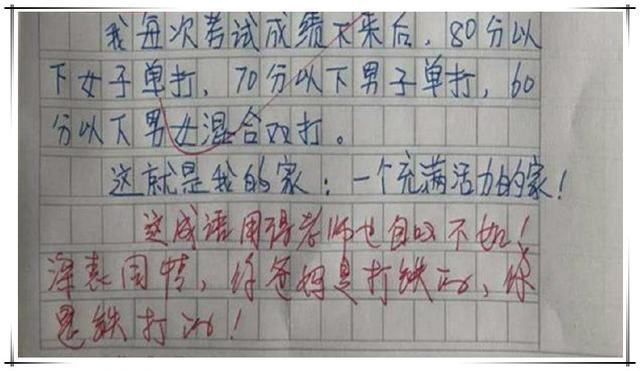 我每次考试成绩下来后，80分以
下女子单打，70分以下男子单打，60
分以下男女混合双打。
这就是我的家：一个充满活力的家！
这成语用得老师也自叹不如！
深表同情，你爸妈是打铁的，你
是铁打的！